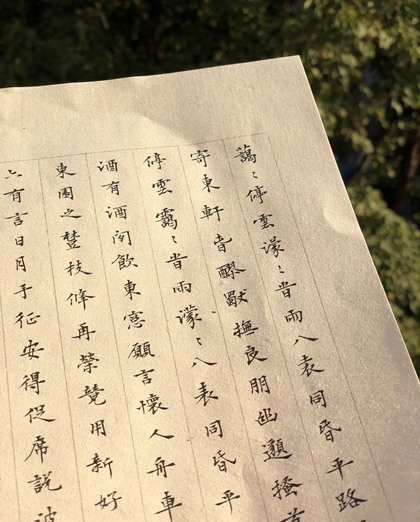 藹〻停雲濛〻旹雨八表同昏平路
寄東軒旾醪獨撫良朋幽邈搔首
停雲靄〻旹雨濛〻八表同昏平
酒有酒閒飲東窓願言懷人舟車
東園之樹枝條再榮競用新好
亦有言日月于征安得促席説彼